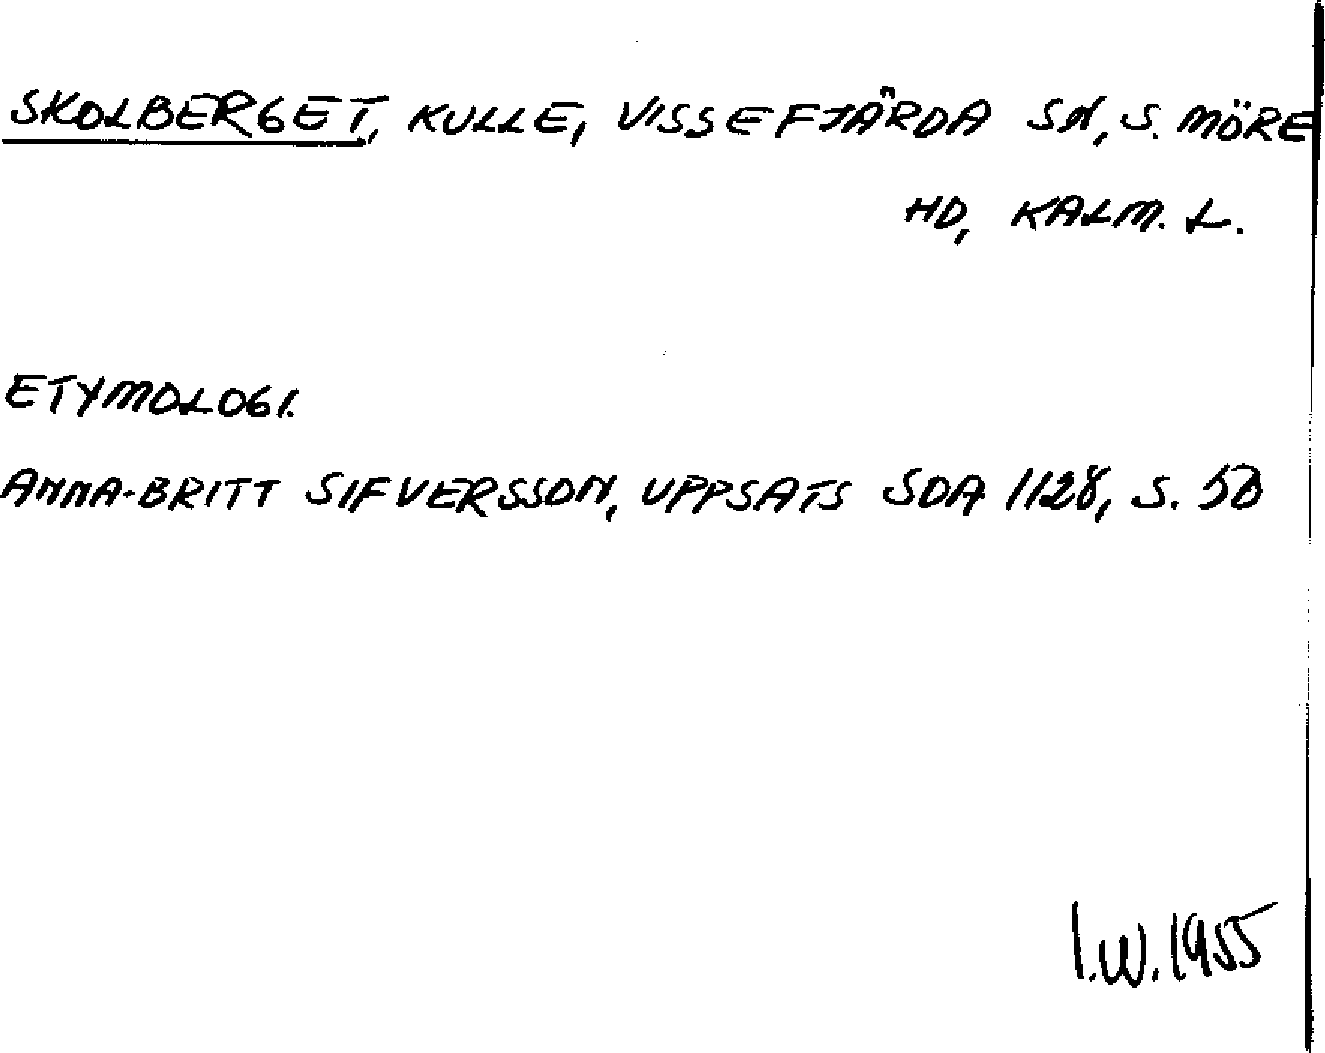 SKOLBERGET, KULLE, VISSEFJÄRDA SN, S. MÖRE
HD, KALM. L.
ETYMOLOGI.
ANNA-BRITT SIFVERSSON, UPPSATS SOA 1128, S. 50
I.W. 1955